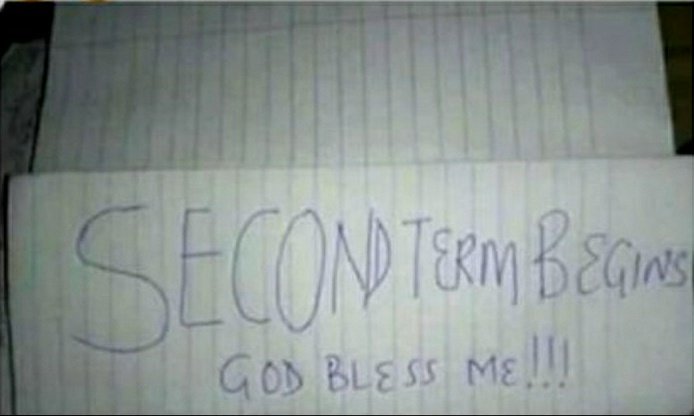 SECOND TERM BEGINS
GOD BLESS ME!!!